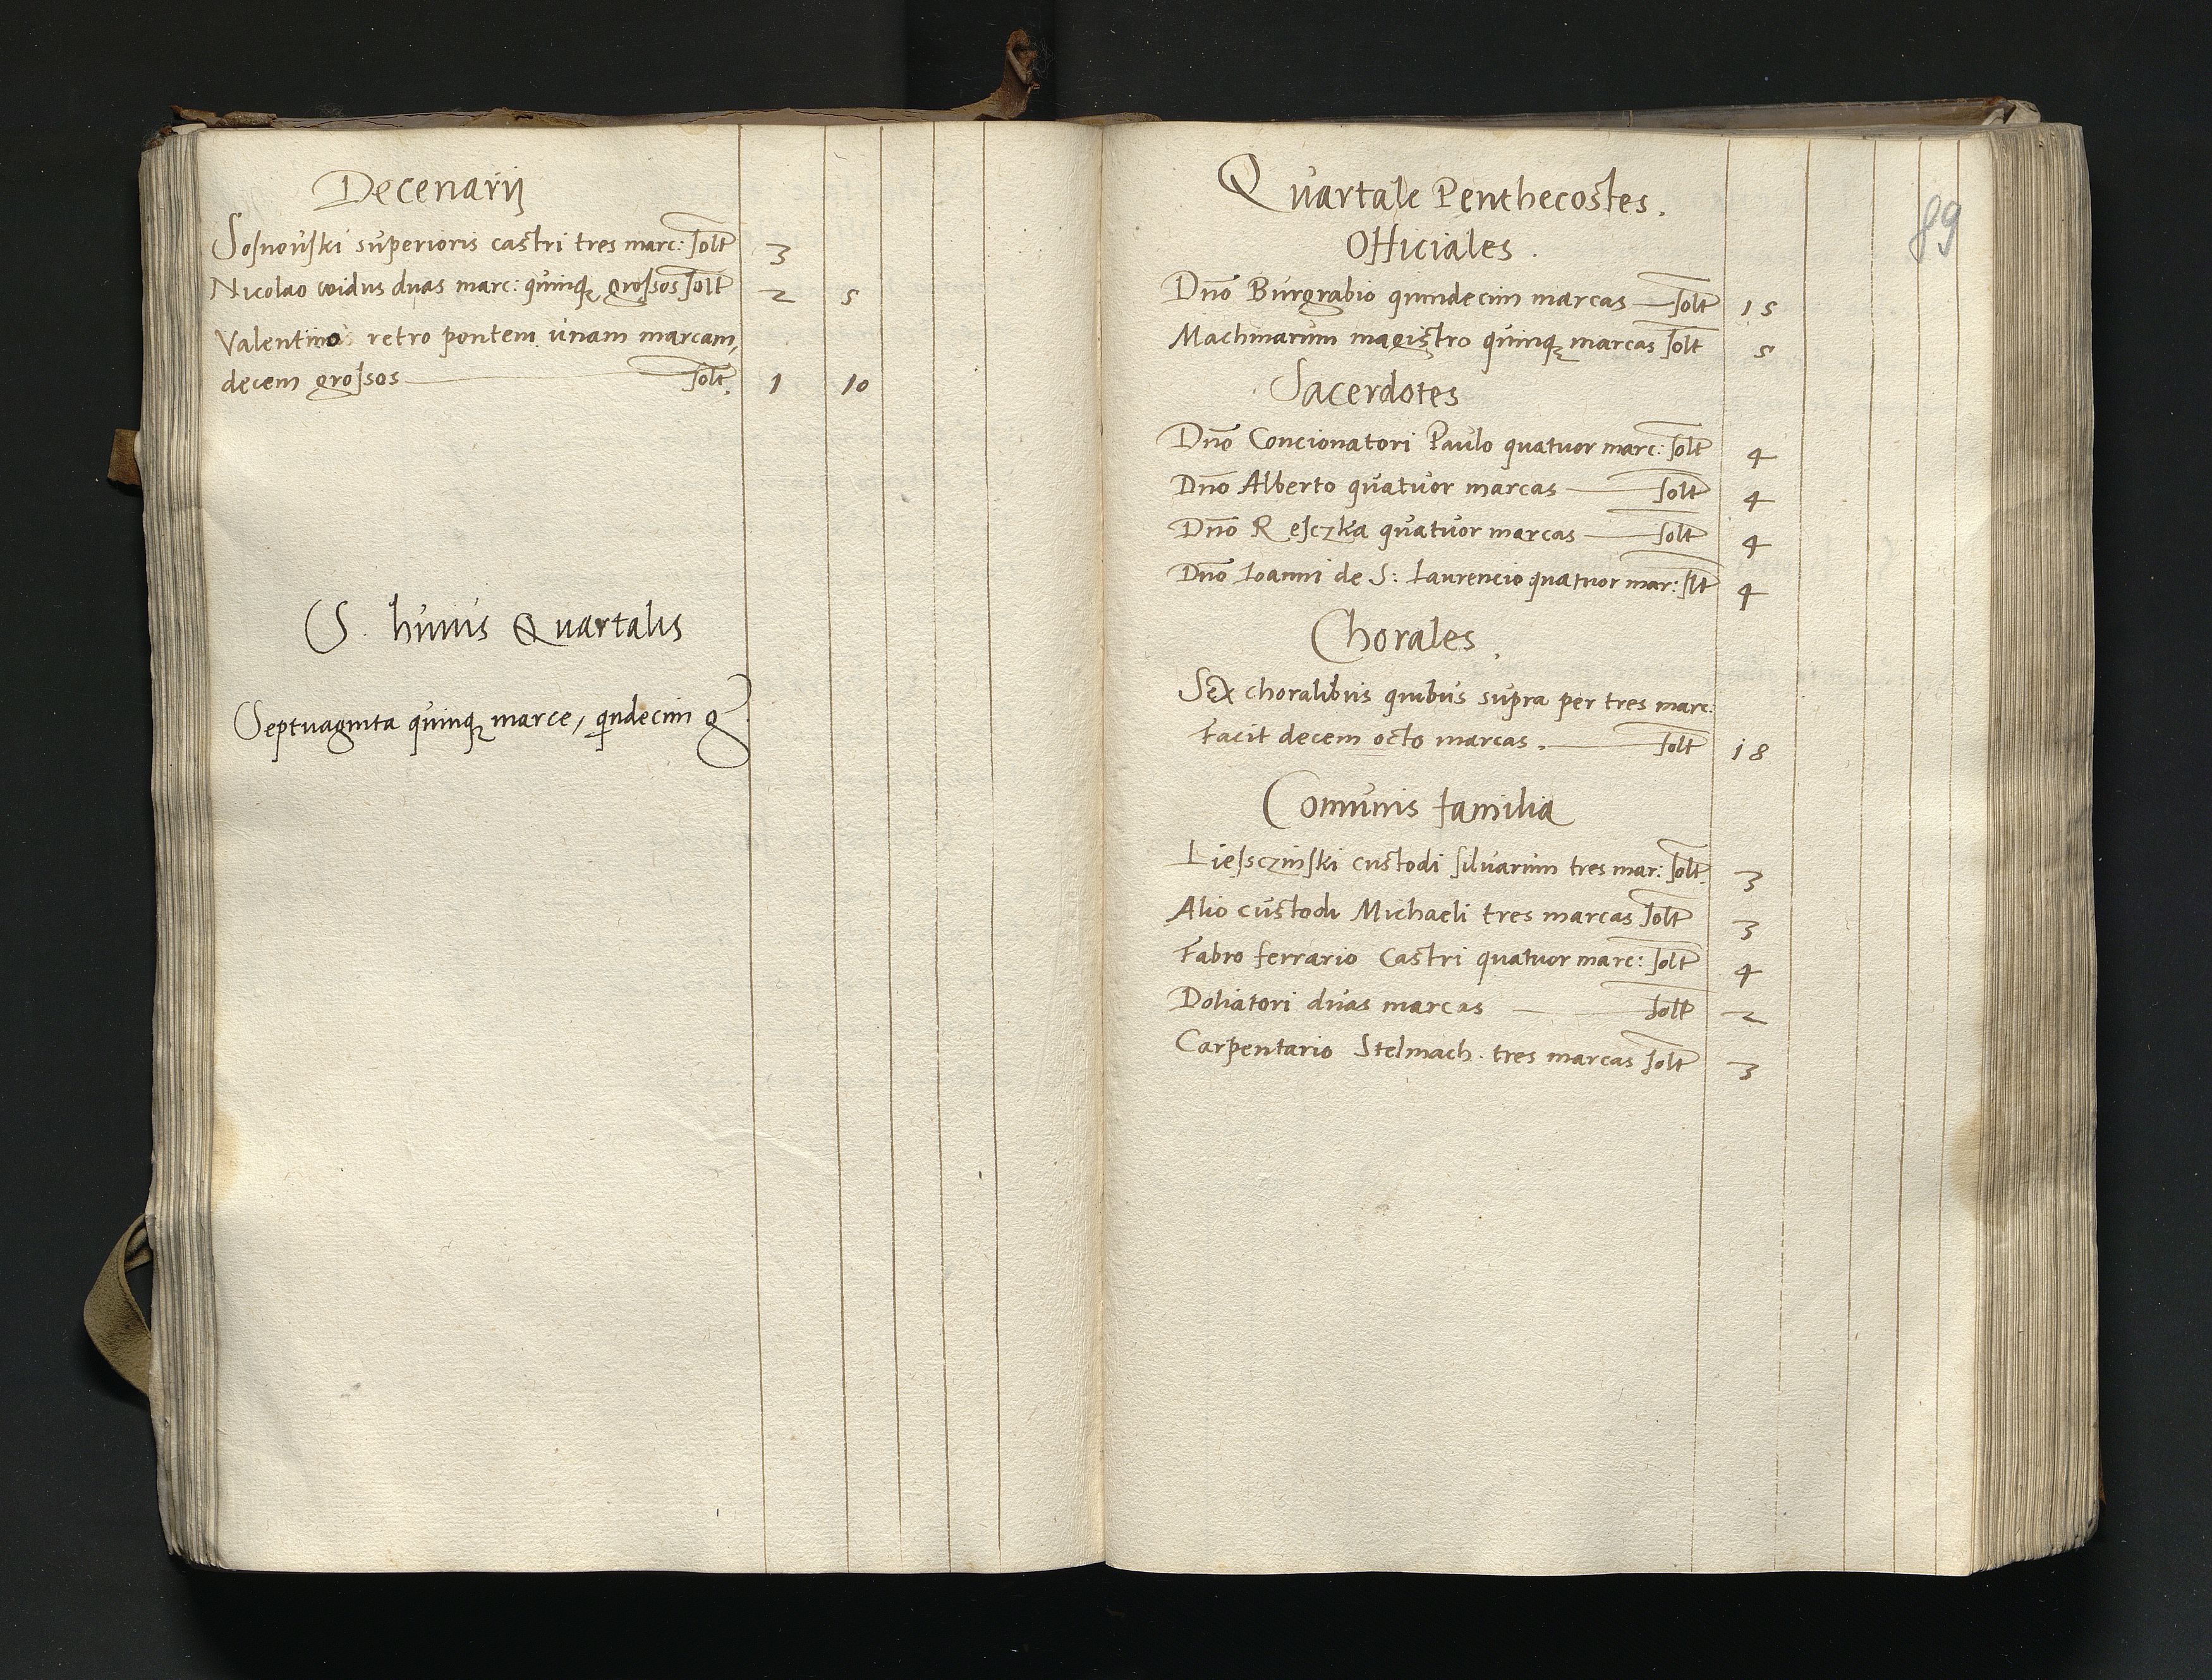 Decenarij
Sosnowski superioris castri tres marc: solt 3
Nicolao duas marc: quinqȝ grossos solt 2 5
Valentino retro pontem unam marcam,
decem grossos solt. 1 10
S. huius Quartalis
Septuaginta quinqȝ marce, qndecim g
89
Quartale Penthecostes.
Officiales.
Dno Burgrabio quindecim marcas solt 15
Machinarum magistro quinqȝ marcas solt 5
Sacerdotes
Dno Concionatori Paulo quatuor marc: solt 4
Dno Alberto quatuor marcas solt 4
Dno Resczka quatuor marcas solt 4
Dno Ioanni de S: Laurencio quatuor mar: slt 4
Chorales.
Sex choralibus quibus supra per tres marc:
Facit decem octo marcas. solt 18
Comunis familia
Liessczinski custodi silvarum tres mar: solt. 3
Alio custodi Michaeli tres marcas solt 3
Fabro ferrario Castri quatuor marc: solt 4
Doliatori duas marcas solt 2
Carpentario Stelmach. tres marcas solt 3